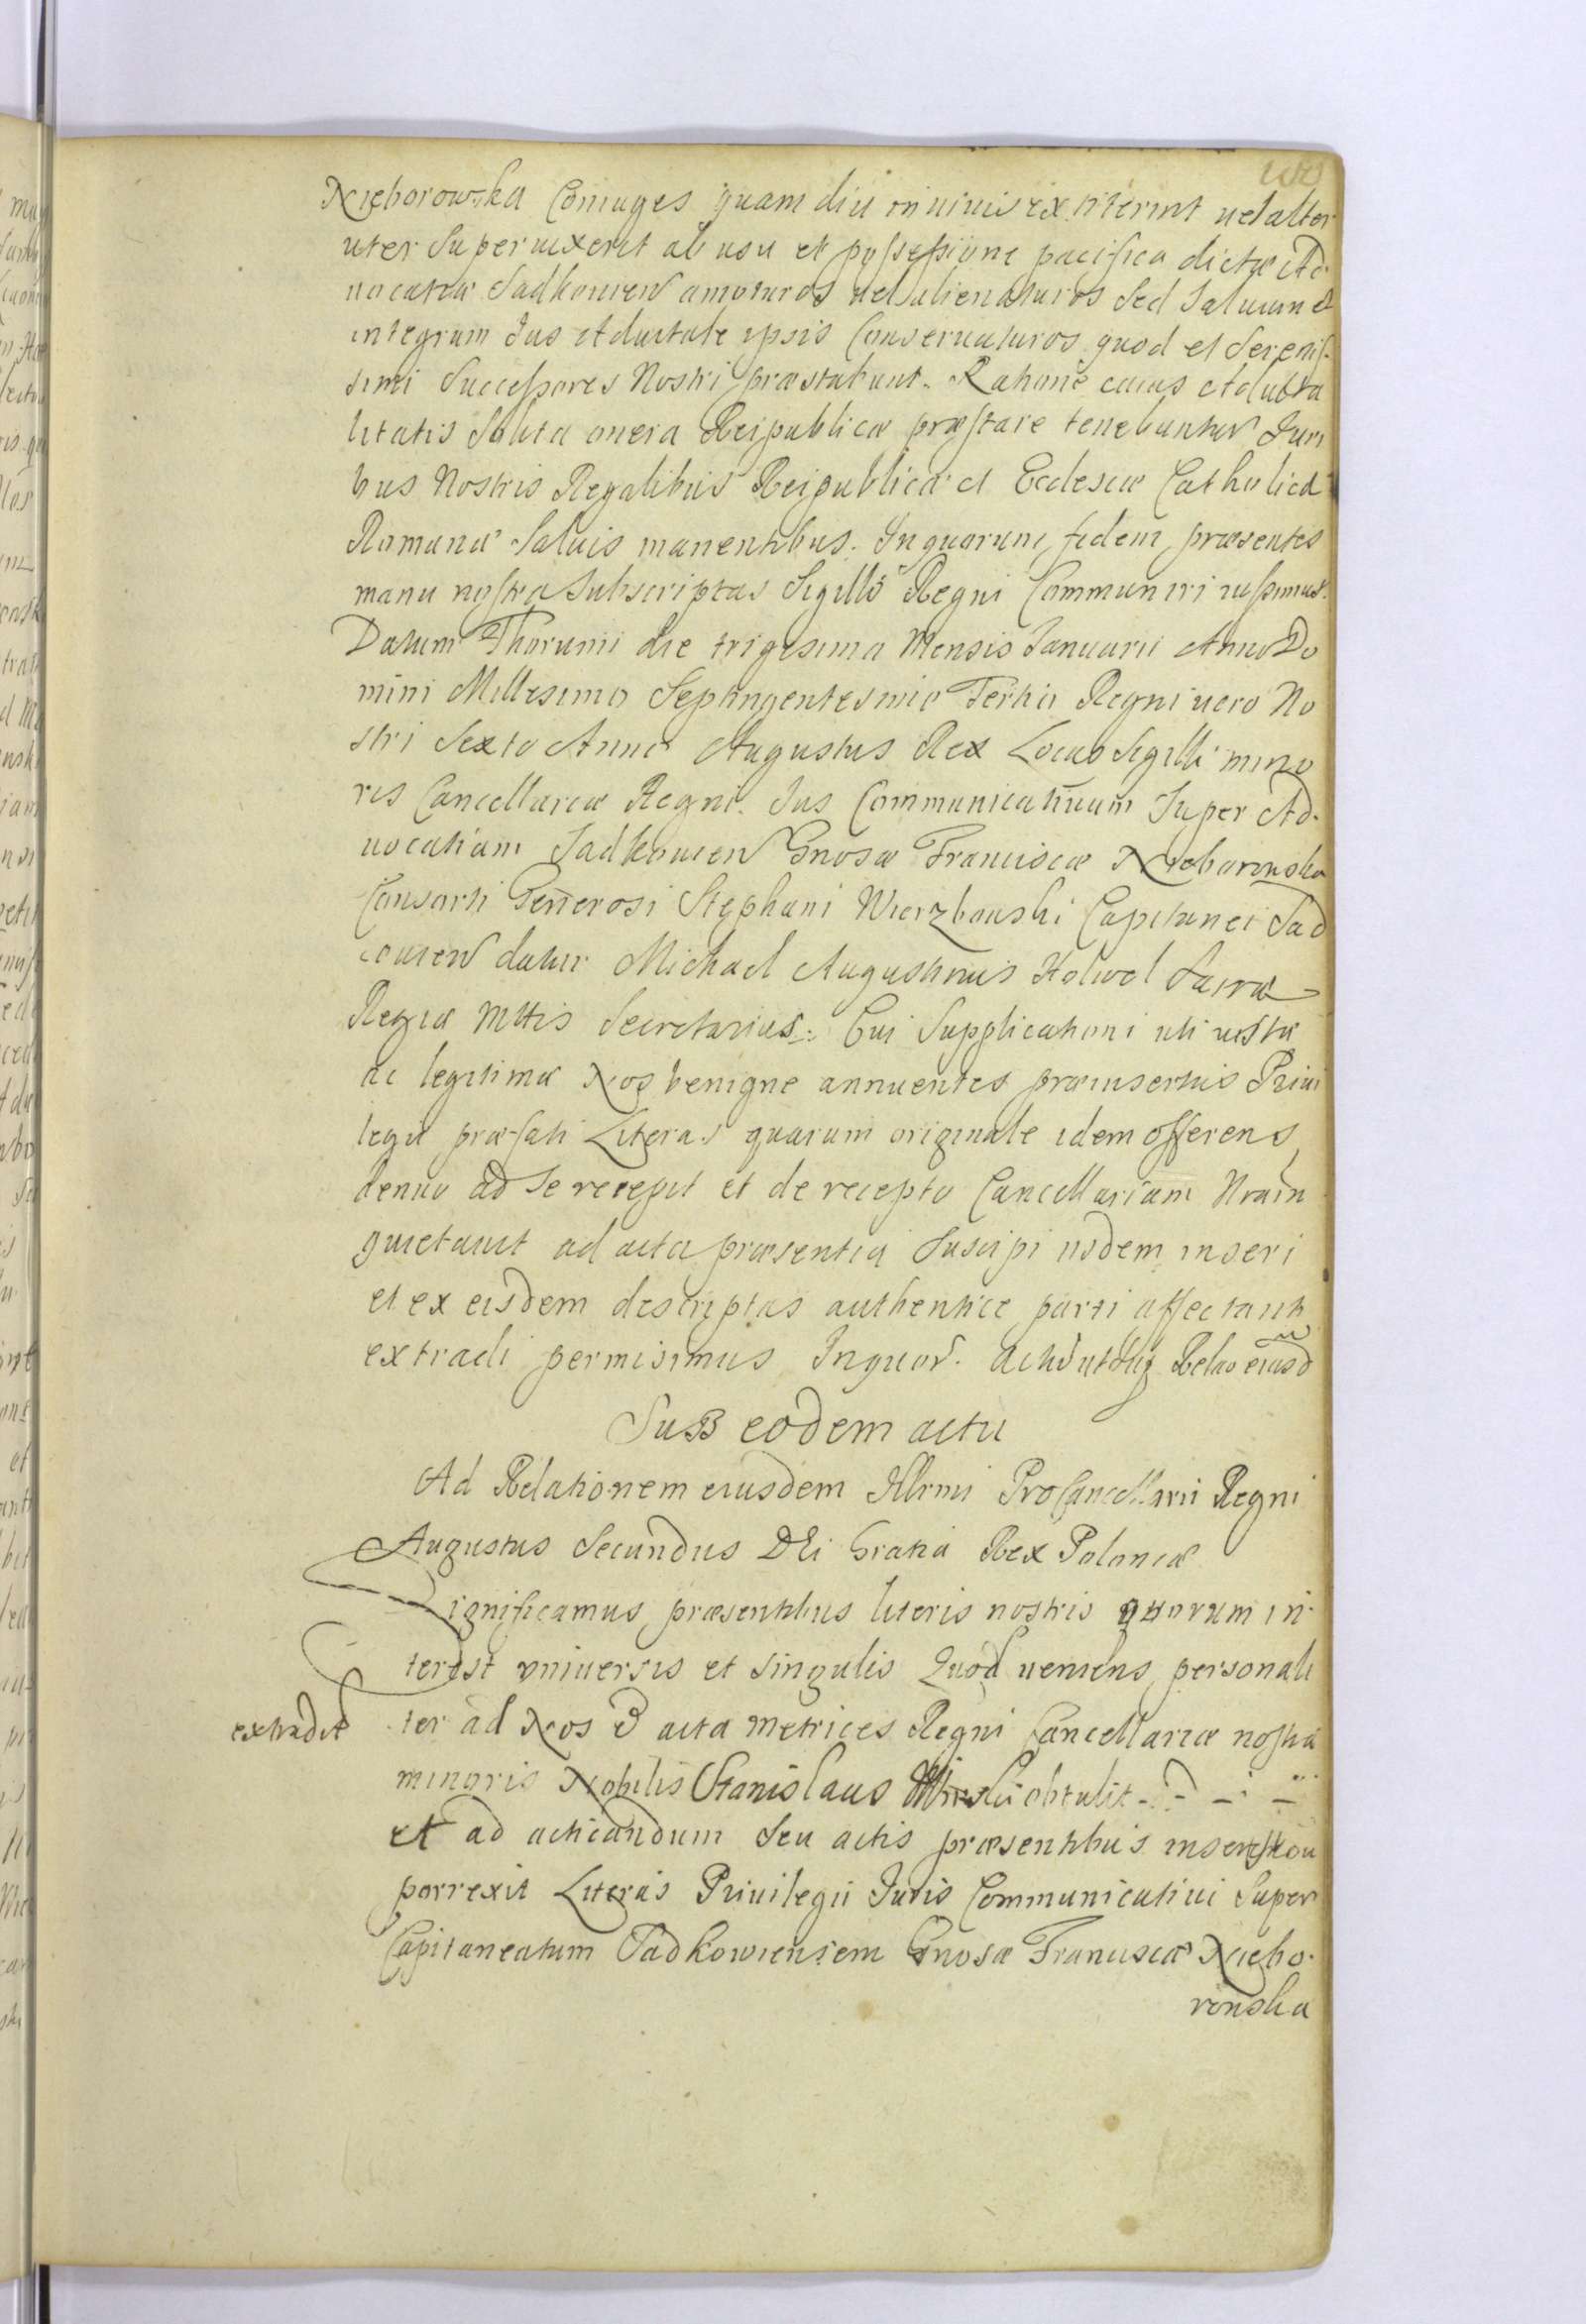 Nieborowska Coniuges quam diu in uiuis extiterint uel alter
uter Superuixerit ab usu et possessione pacifica dictæ Ad
uocatiæ Sadkouien amoturos uel alienaturos Sed Saluum et
integrum Jus Aduitale ipsis Conseruaturos quod et Serenis
simi Successores Nostri præstabunt. Ratione cuius Aduota
litatis Solita onera Reipublicæ præstare tenebuntur Juri
bus Nostris Regalibus Reipublicæ et Eclesiæ Catholicæ
Romanæ Saluis manentibus. In quorum fidem præsentes
manu nostra Subscriptas Sigillo Regni Communiri iussimus.
Datum Thorunii die trigesima Mensis Januarii Anno Do
mini Millesimo Septingentesimo Tertio Regni uero No
stri Sexto Anno Augustus Rex Locus Sigilli mino
ris Cancellariæ Regni. Jus Communicatiuum Super Ad
uocatiam Sadkouien Gnosæ Franciscæ Nieborowska
Consorti Generosi Stephani Wierzbouski Capitanei Sad
couien datur Michael Augustinus Holwel Sacræ
Regiæ Mttis Secretarius. Cui Supplicationi uti iustæ
ac legitimæ Nos benigne annuentes præinsertas Priui
legii præfati Literas quarum originale idem offerens
denuo ad Se recepit et de recepto Cancellariam Nram
quietauit ad acta præsentia Suscipi iisdem inseri
et ex eisdem descriptas authentice parti affectanti
extradi permisimus In quor. Relao eiusd
SuB eodem actu
Ad Relationem eiusdem Illrmi ProCancellarii Regni
Augustus Secundus DEi Gratia Rex Poloniæ
Significamus præsentibus literis nostris quorum in
terest vniuersis et singulis Quod ueniens personali
extradit ter ad Nos & acta Metrices Regni Cancellariæ nostræ
minoris Nobilis Stanislaus obtulit
et ad acticandum Seu actis præsentibus
porrexit Literas Priuilegii Juris Communicatiui Super
Capitaneatum Sadkowiensem Gnosæ Franciscæ Niebo
rouska